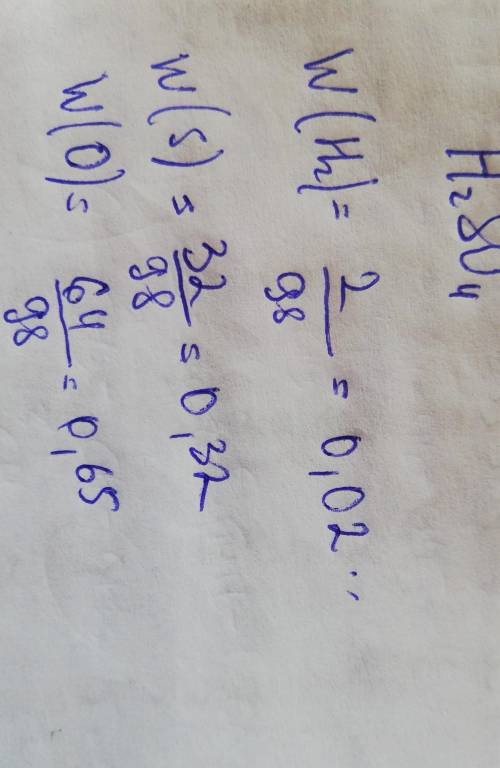 H₂SO₄
W(H₂) = 2/98 = 0,02..
W(S) = 32/98 = 0,32
W(O) = 64/98 = 0,65